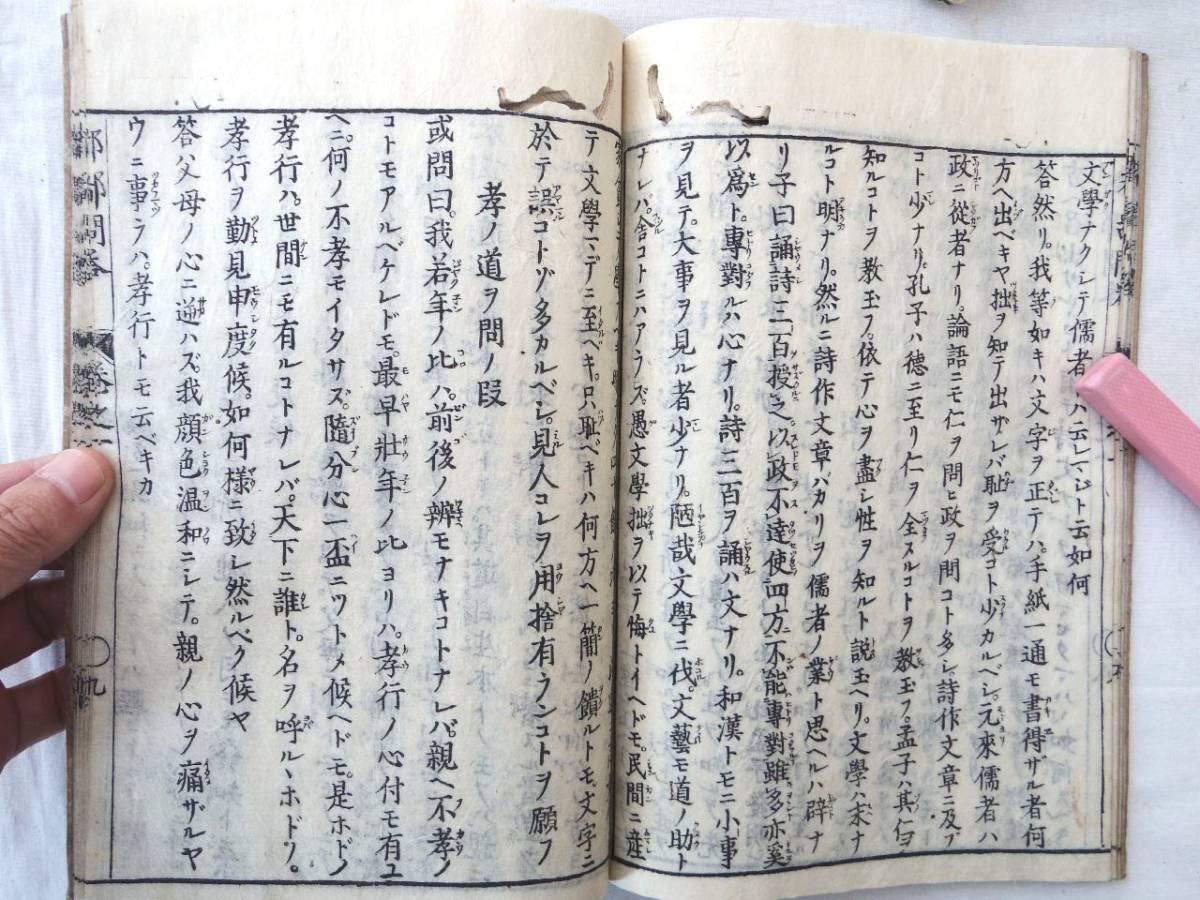 文學ナクシテ儒者トハ云レマジト云如何
答然リ。我等如キハ文字ヲ正テハ。手紙一通モ書得ザル者何
方ヘ出ベキヤ拙ヲ知テ出ザレバ恥ヲ受コト少カルベシ。元來儒者ハ
政ニ從者ナリ。論語ニモ仁ヲ問ヒ政ヲ問コト多シ詩作文章ニ及ブ
コト少ナリ。孔子ハ德ニ至リ仁ヲ全スルコトヲ教玉フ。孟子ハ其
知ルコトヲ教玉フ。依テ心ヲ盡シ性ヲ知ルト說玉ヘリ。文學ハ末ナ
ルコト明ナリ。然ルニ詩作文章バカリヲ儒者ノ業ト思ヘルハ辟ナ
リ子曰誦詩三百授之以政不達使四方不能專對雖多亦奚
以爲ト。專對ルハ心ナリ。詩三百ヲ誦ハ文ナリ。和漢トモニ小事
ヲ見テ。大事ヲ見ル者少ナリ。陋哉文學ニ伐。文藝モ道ノ助ト
ナレバ。舍コトニハアラズ。愚文學拙ヲ以テ悔トイヘドモ。民間ニ產
テ文學マデニ至ベキ。只恥ベキハ何方ヘ一簡ノ饋ルトモ。文字ニ
於テ誤コトゾ多カルベシ。見人コレヲ用捨有ランコトヲ願フ
孝ノ道ヲ問ノ段
或問曰。我若年ノ比ハ。前後ノ辨モナキコトナレバ。親ヘ不孝ノ
コトモアルベケレドモ。最早壯年ノ比ヨリハ。孝行ノ心付モ有ユ
ヘニ。何ノ不孝モイタサズ。隨分心一盃ニツトメ候ヘドモ。是ホドノ
孝行ハ。世間ニモ有ルコトナレバ。天下ニ誰ト。名ヲ呼ルヽホドノ。
孝行ヲ勤見申度候。如何樣ニ致シ然ルベク候ヤ
答父母ノ心ニ逆ハズ。我顏色温和ニシテ。親ノ心ヲ痛ザルヤ
ウニ事ラハ。孝行トモ云ベキカ
都鄙問答
卷之一
九